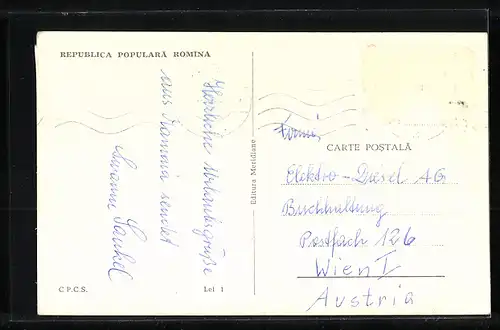 REPUBLICA POPULARĂ ROMÎNA
Herzliche Urlaubsgrüße
aus Mamaia sendet
Susanne
C P.C.S.
Lei 1
Editura Meridiane
CARTE POSTALĂ
Elektro-Diesel AG
Buchhaltung
Postfach 126
Wien I
Austria